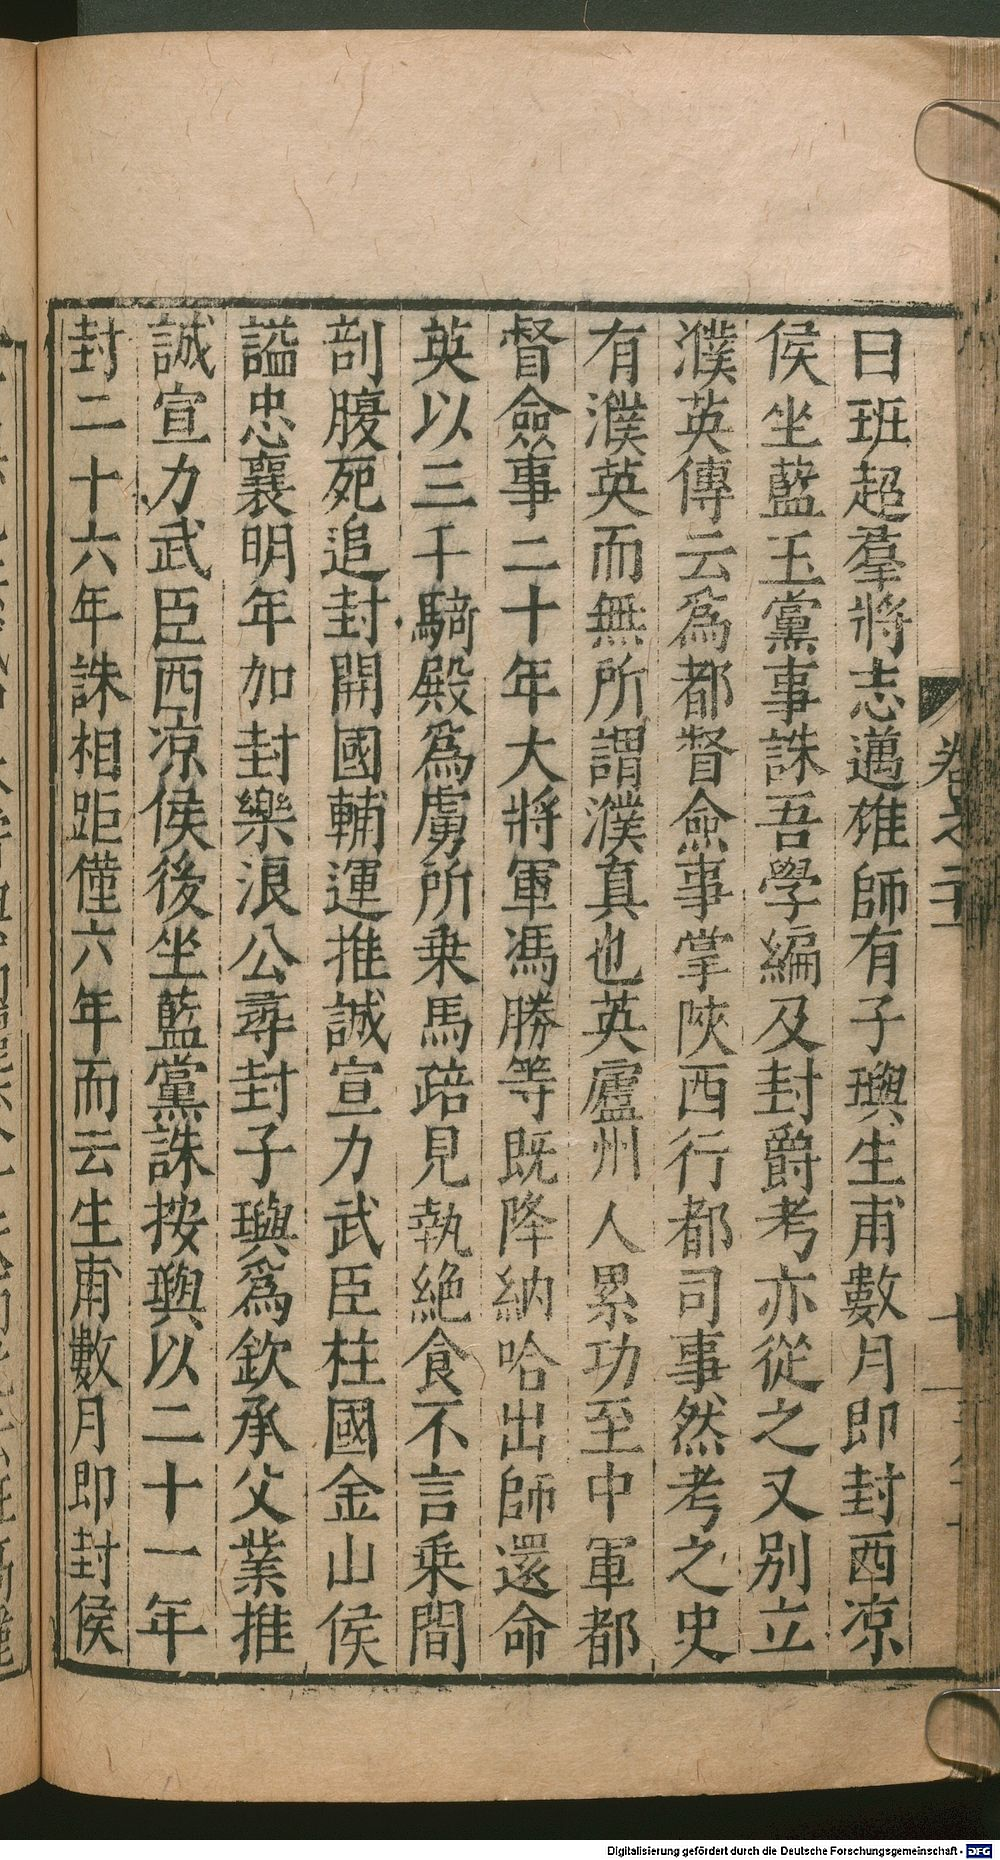 曰班超羣將志邁雄師有子璵生甫數月即封西涼
侯坐藍玉黨事誅吾學編及封爵考亦從之又别立
濮英傳云爲都督僉事掌陜西行都司事然考之史
有濮英而無所謂濮真也英廬州人累功至中軍都
督僉事二十年大將軍馮勝等既降納哈出師還命
英以三千騎殿爲虜所乗馬踣見執絶食不言乗間
剖腹死追封開國輔運推誠宣力武臣柱國金山侯
謚忠襄明年加封樂浪公尋封子璵爲欽承父業推
誠宣力武臣西凉侯後坐藍黨誅按璵以二十一年
封二十六年誅相距僅六年而云生甫數月即封侯
卷之二十
Digitalisierung gefördert durch die Deutsche Forschungsgemeinschaft - DFG